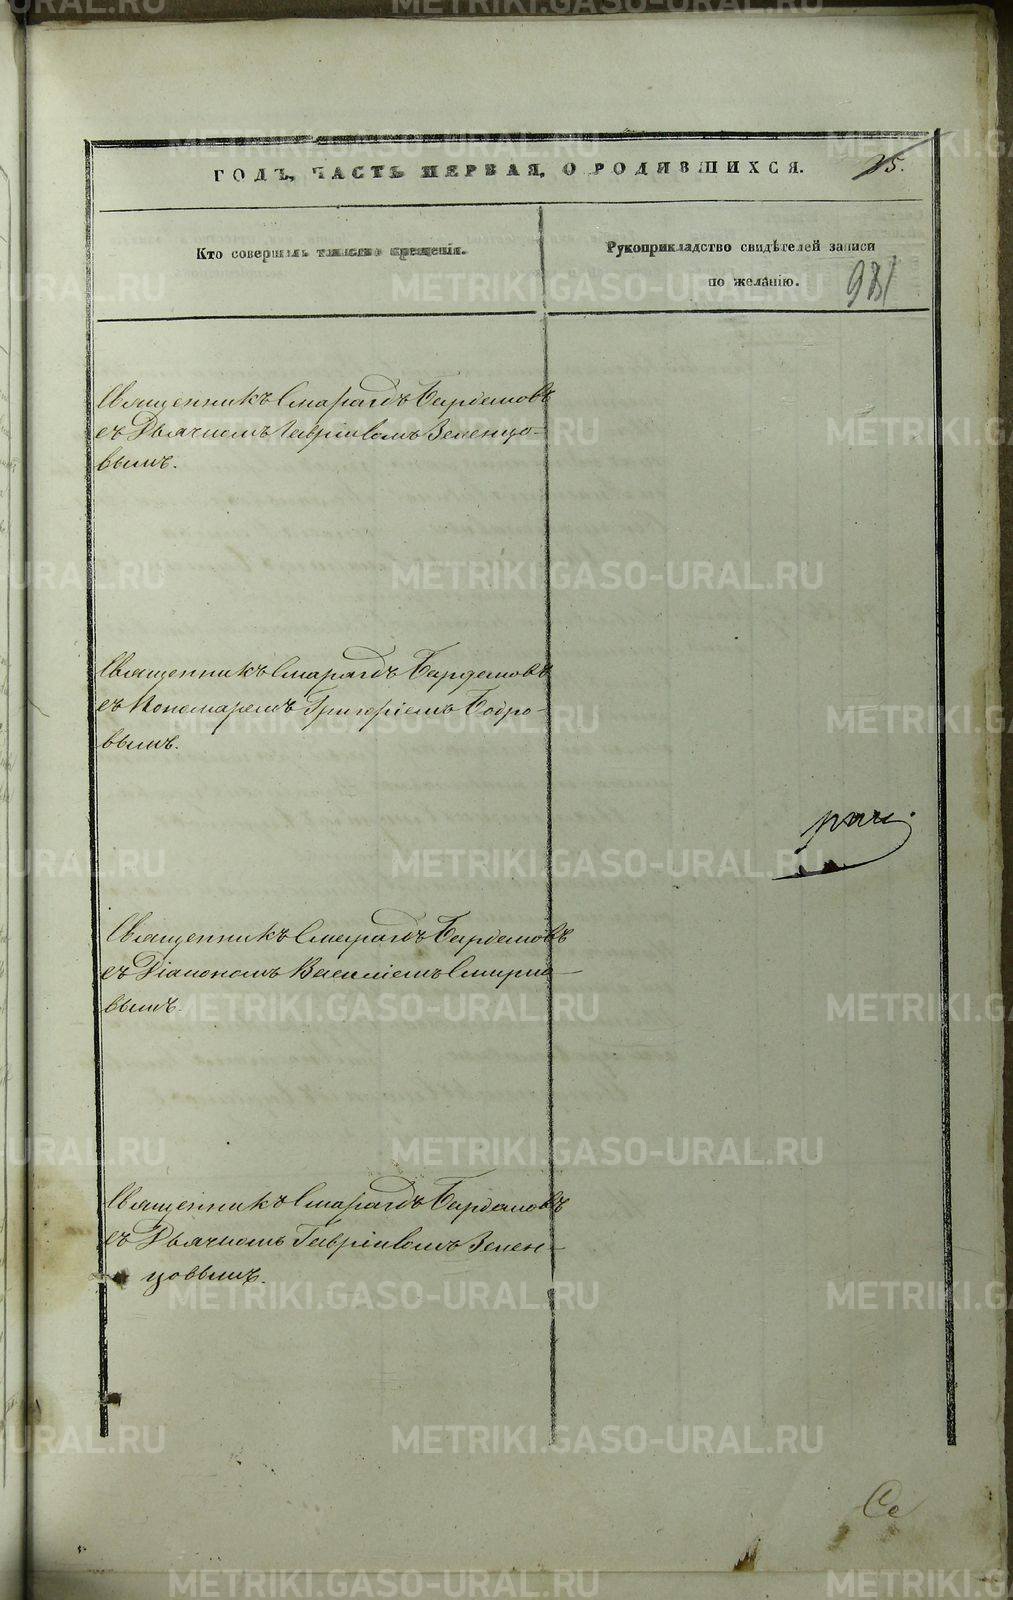 ГОДЪ, ЧАСТЬ ПЕРВАЯ, О РОДИВШИХСЯ. 25.
Кто совершилъ таинство крещенія.
Рукоприкладство свидѣтелей записи
по желанію.
981
Священникъ Смарагдъ Бардамовъ
съ Дьячкомъ Гавріиломъ Зеленцо-
вымъ.
Священникъ Смарагдъ Бардамовъ
съ Пономаремъ Григоріемъ Бобро-
вымъ.
Священникъ Смарагдъ Бардамовъ
съ Діакономъ Василіемъ Смирно-
вымъ.
Священникъ Смарагдъ Бардамовъ
съ Дьячкомъ Гавріиломъ Зелен-
цовымъ.
METRIKI.GASO-URAL.RU